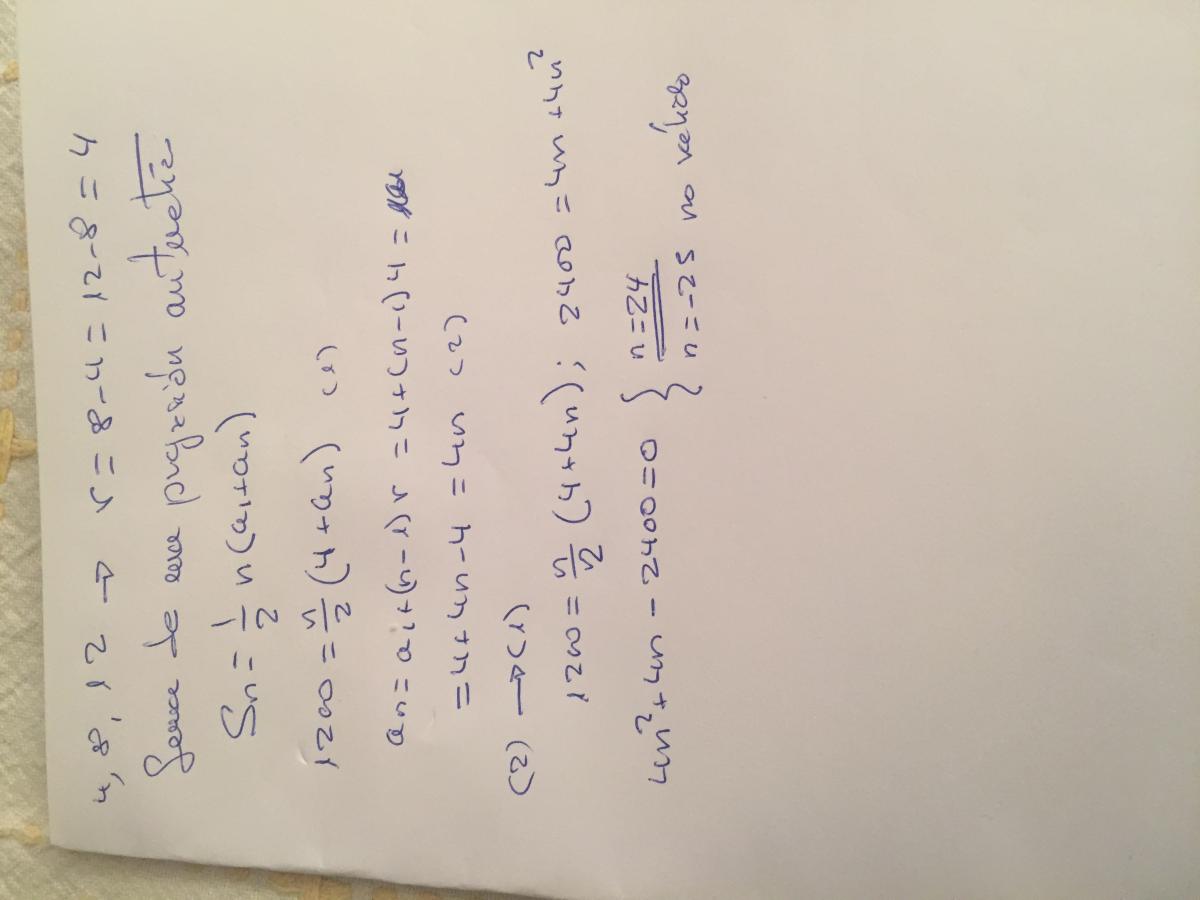 4, 8, 12 → r = 8-4 = 12-8 = 4
Suma de una progresión aritmética
Sn = 1/2 n (a1+an)
1200 = n/2 (4+an) (1)
an = a1+(n-1)r = 4+(n-1)4 =
= 4+4n-4 = 4n (2)
(2) → (1)
1200 = n/2 (4+4n); 2400 = 4n+4n²
4n²+4n-2400=0 } n=24
{ n=-25 no válido